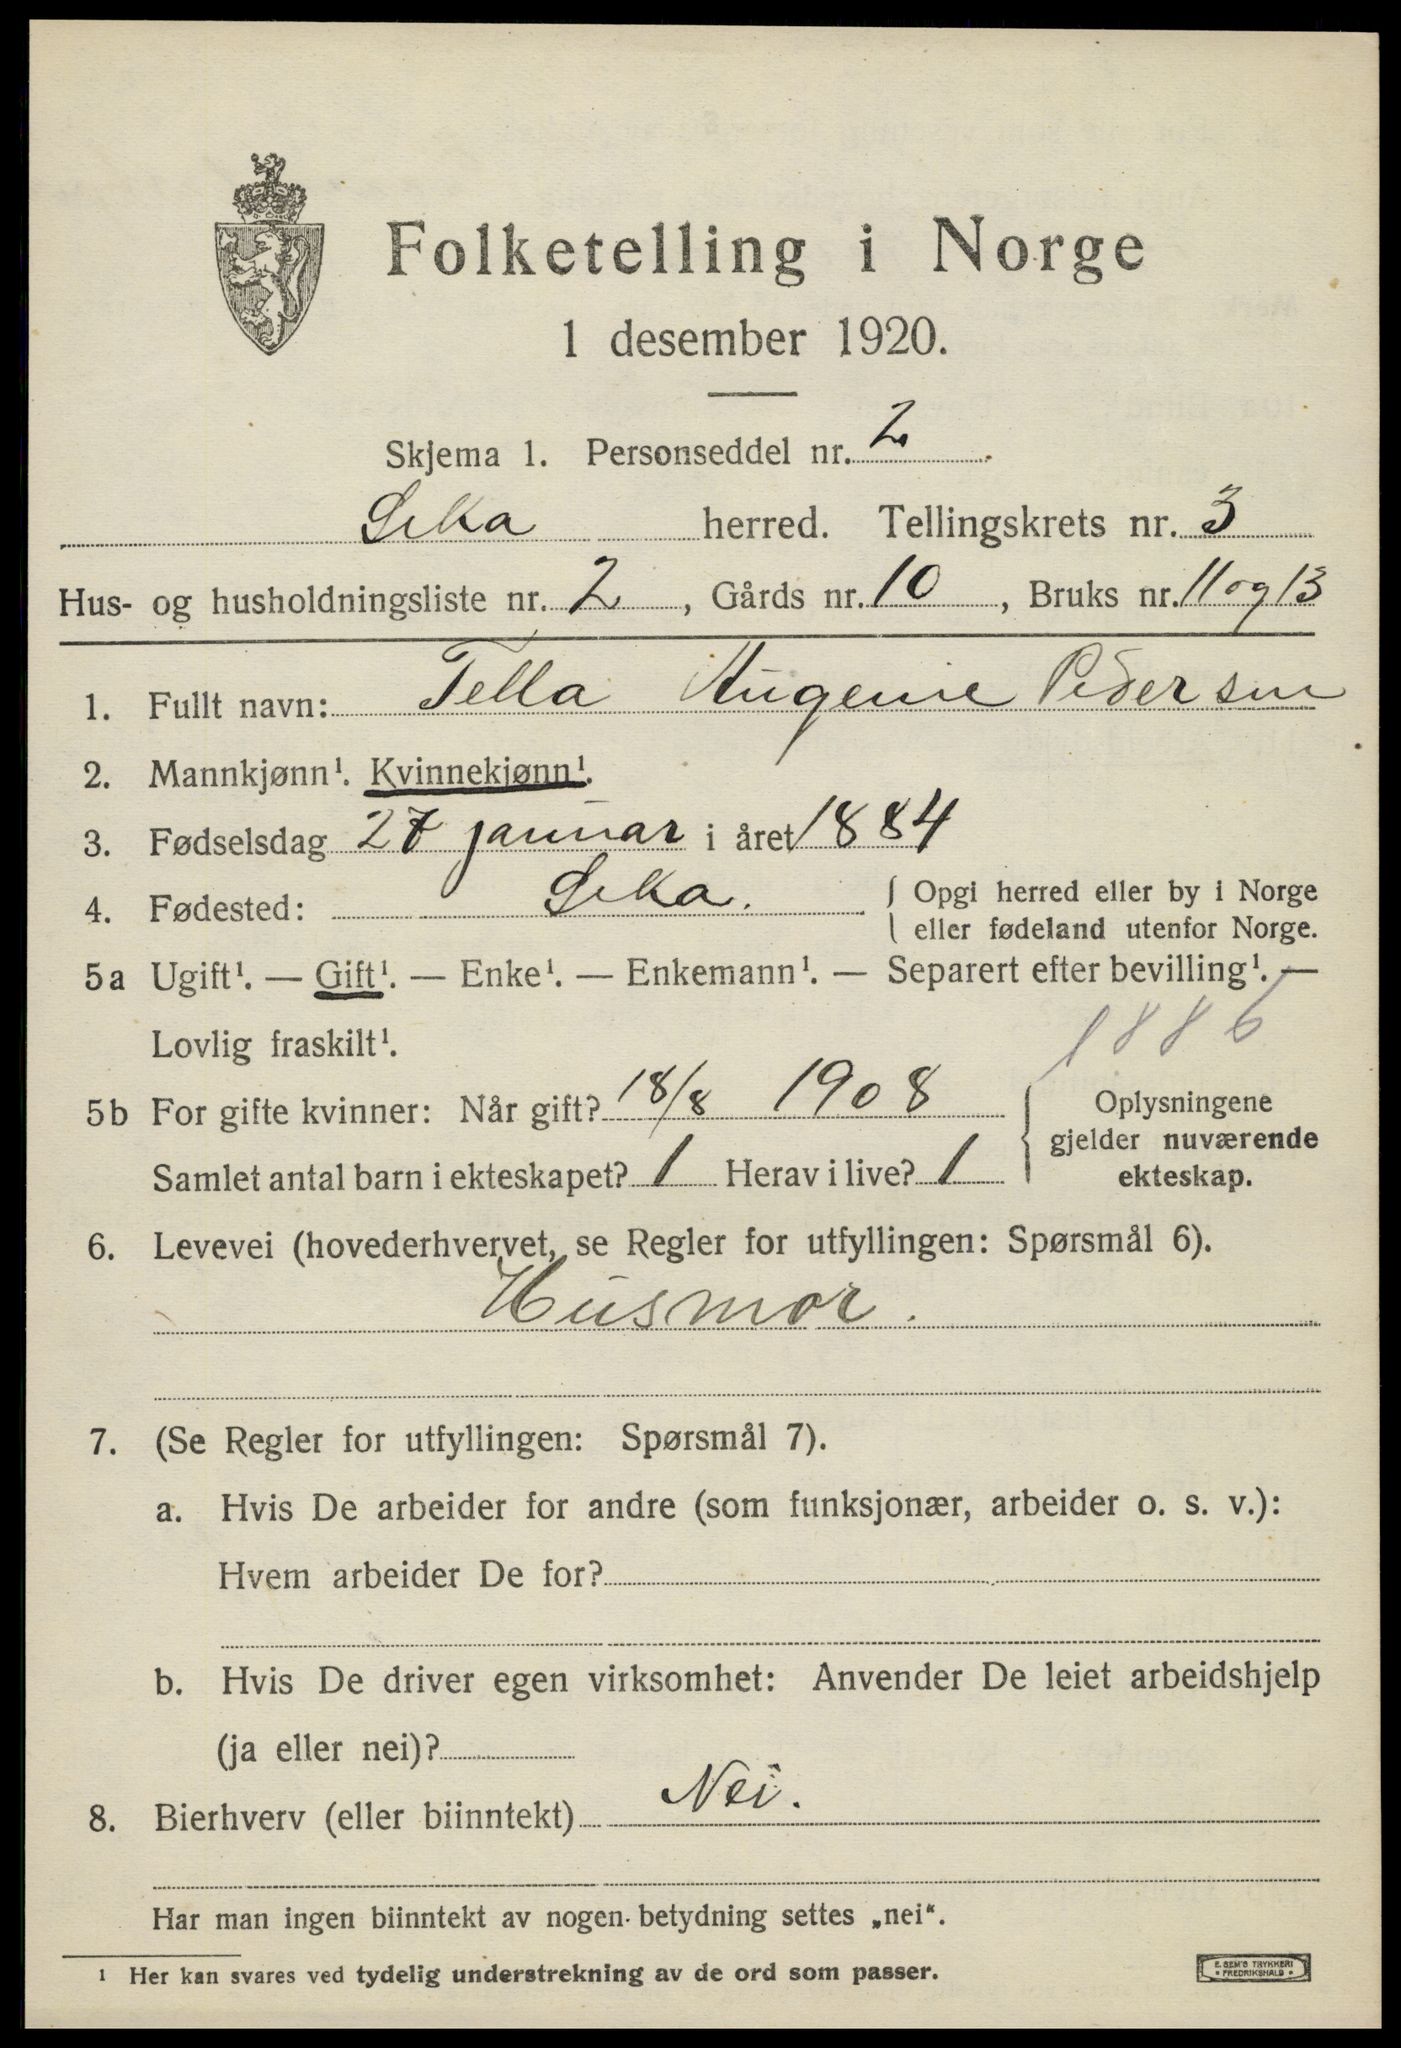 Folketelling i Norge
1 desember 1920.
Skjema 1. Personseddel nr. 2
Leka herred. Tellingskrets nr. 3
Hus- og husholdningsliste nr. 2, Gårds nr. 10, Bruks nr. 11 og 13
1. Fullt navn: Tella Augenie Pedersen
2. Mannkjønn¹. Kvinnekjønn¹.
3. Fødselsdag 27 januar i året 1884
4. Fødested: Leka. { Opgi herred eller by i Norge
eller fødeland utenfor Norge.
5a Ugift¹. — Gift¹. — Enke¹. — Enkemann¹. — Separert efter bevilling¹. —
Lovlig fraskilt¹. 1886
5b For gifte kvinner: Når gift? 18/8 1908 { Oplysningene
gjelder nuværende
Samlet antal barn i ekteskapet? 1 Herav i live? 1 ekteskap.
6. Levevei (hovederhvervet, se Regler for utfyllingen: Spørsmål 6).
Husmor.
7. (Se Regler for utfyllingen: Spørsmål 7).
a. Hvis De arbeider for andre (som funksjonær, arbeider o. s. v.):
Hvem arbeider De for?
b. Hvis De driver egen virksomhet: Anvender De leiet arbeidshjelp
(ja eller nei)?
8. Bierhverv (eller biinntekt) Nei.
Har man ingen biinntekt av nogen betydning settes „nei“.
¹ Her kan svares ved tydelig understrekning av de ord som passer.
E. SEM'S TRYKKERI
• FREDRIKSHALD •